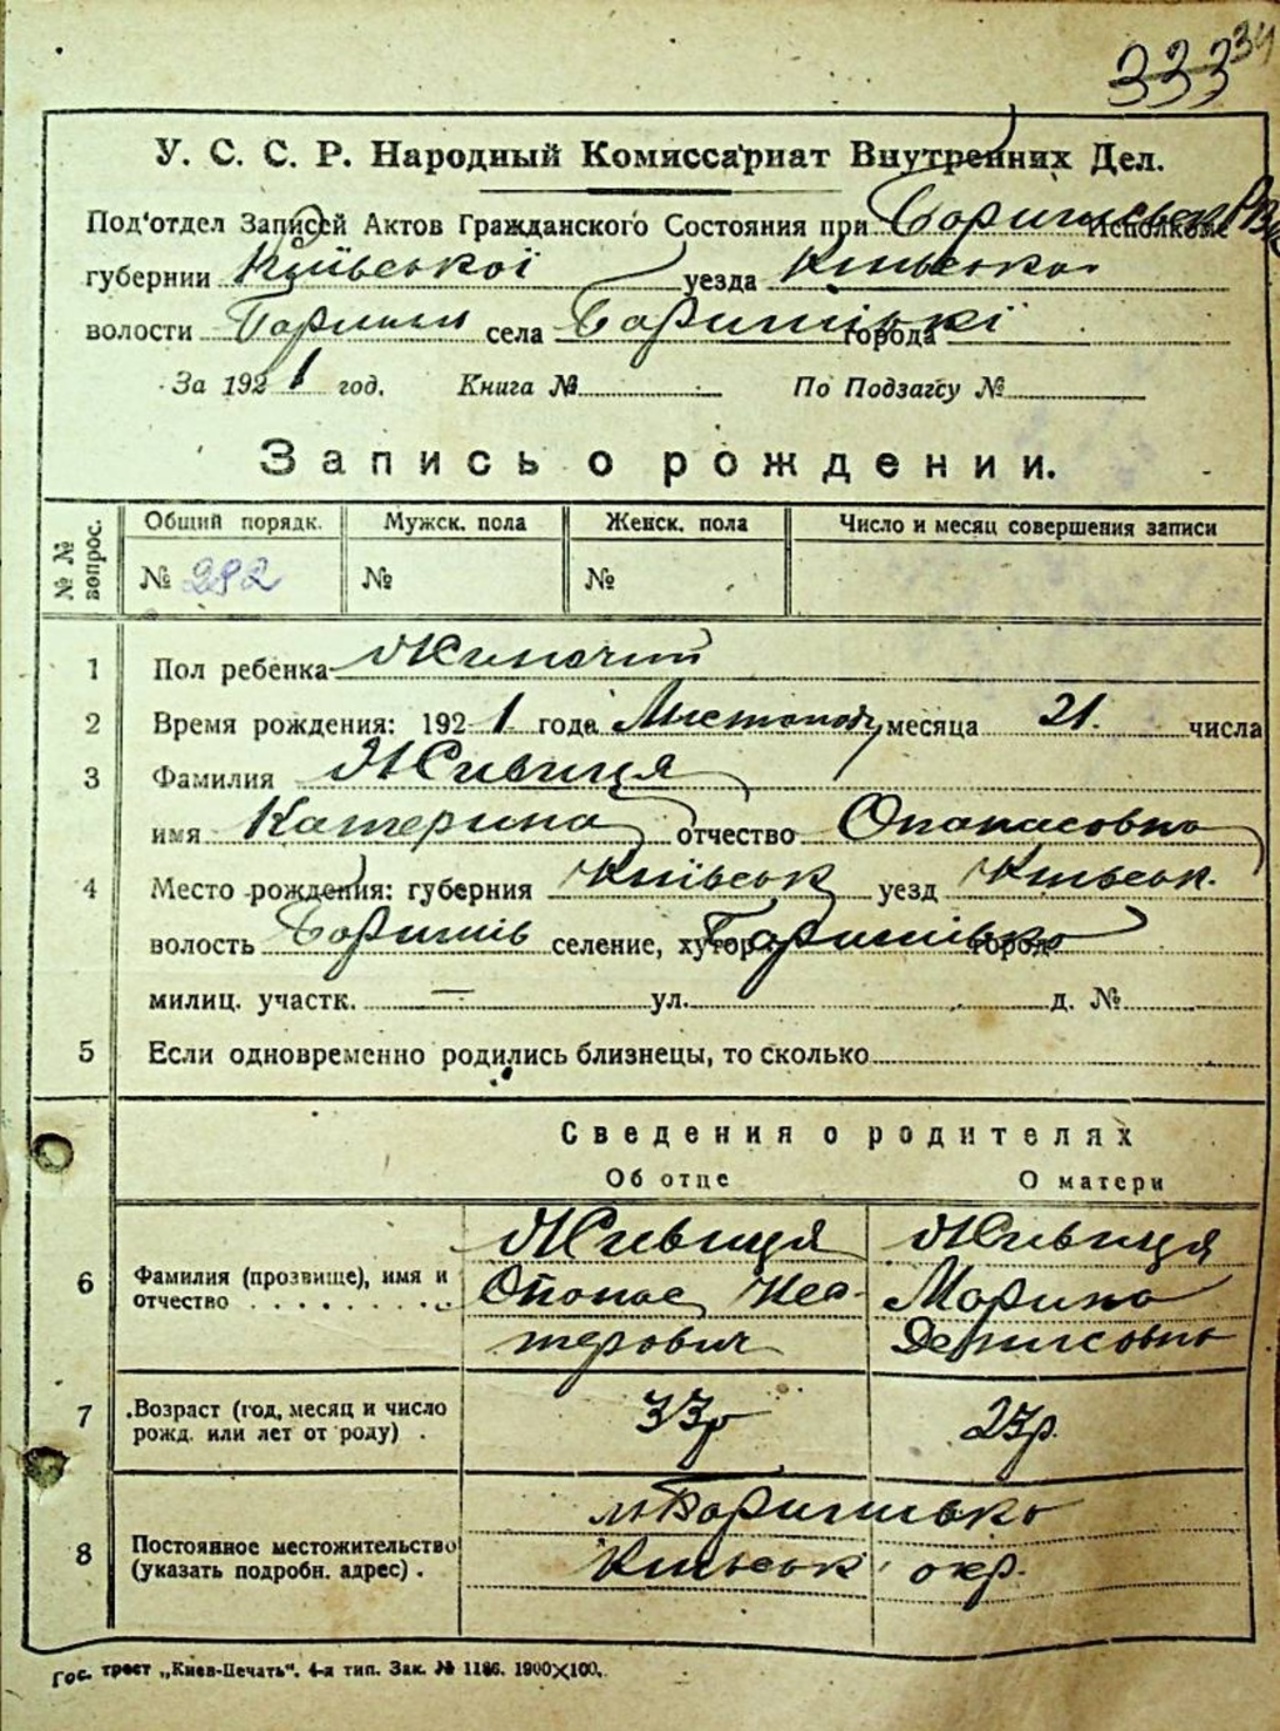 333 34
У. С. С. Р. Народный Комиссариат Внутренних Дел.
Под'отдел Записей Актов Гражданского Состояния при Исполкоме
губернии Київської уезда Київсько
волости Баришів села Баришівкі города
За 1921 год. Книга № По Подзагсу №
Запись о рождении.
№ № вопрос. Общий порядк. Мужск. пола Женск. пола Число и месяц совершения записи
№ 282 № №
1 Пол ребенка Жиночий
2 Время рождения: 1921 года Листопад месяца 21. числа
3 Фамилия Живиця
имя Катерина отчество Опанасовна
4 Место рождения: губерния Київськ уезд Київськ.
волость Баришів селение, хутор Баришівка город
милиц. участк. — ул. д. №
5 Если одновременно родились близнецы, то сколько
Сведения о родителях
Об отце О матери
Живиця Живиця
6 Фамилия (прозвище), имя и отчество Опанас Нес- Марина
терович Денисовна
7 Возраст (год, месяц и число рожд. или лет от роду) . 33р 23р.
м Баришівка
8 Постоянное местожительство (указать подробн. адрес) . Київськ окр.
Гос. трест „Киев-Печать". 4-я тип. Зак. № 1186. 1900×100.